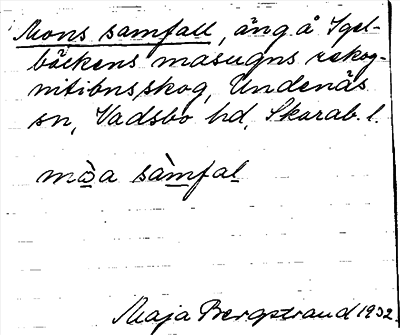 Mons samfall, äng å Igel-
bäckens masugns rekog-
nitionsskog, Undenäs
sn, Vadsbo hd, Skarab. l.
mòa sàmfal
Maja Bergstrand 1932.